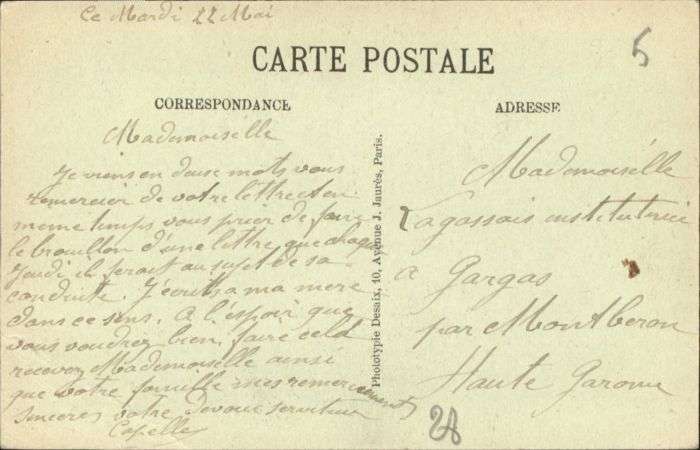 Ce Mardi 22 Mai
5
CARTE POSTALE
CORRESPONDANCE
ADRESSE
Mademoiselle
Je viens en deux mots vous
remercier de votre lettre et en
meme temps vous prier de faire
le brouillon d'une lettre que chaque
Jeudi il ferait au sujet de sa
conduite. J'écrits a ma mere
dans ce sens. A l'espoir que
vous voudrez bien faire cela
recevez Mademoiselle ainsi
que votre famille mes remerciements
sinceres votre devoué serviteur
Capelle
Phototypie Desaix, 10, Avenue J. Jaurès, Paris.
Mademoiselle
Lagassais institutrice
a Gargas
par Montberon
Haute Garonne
28